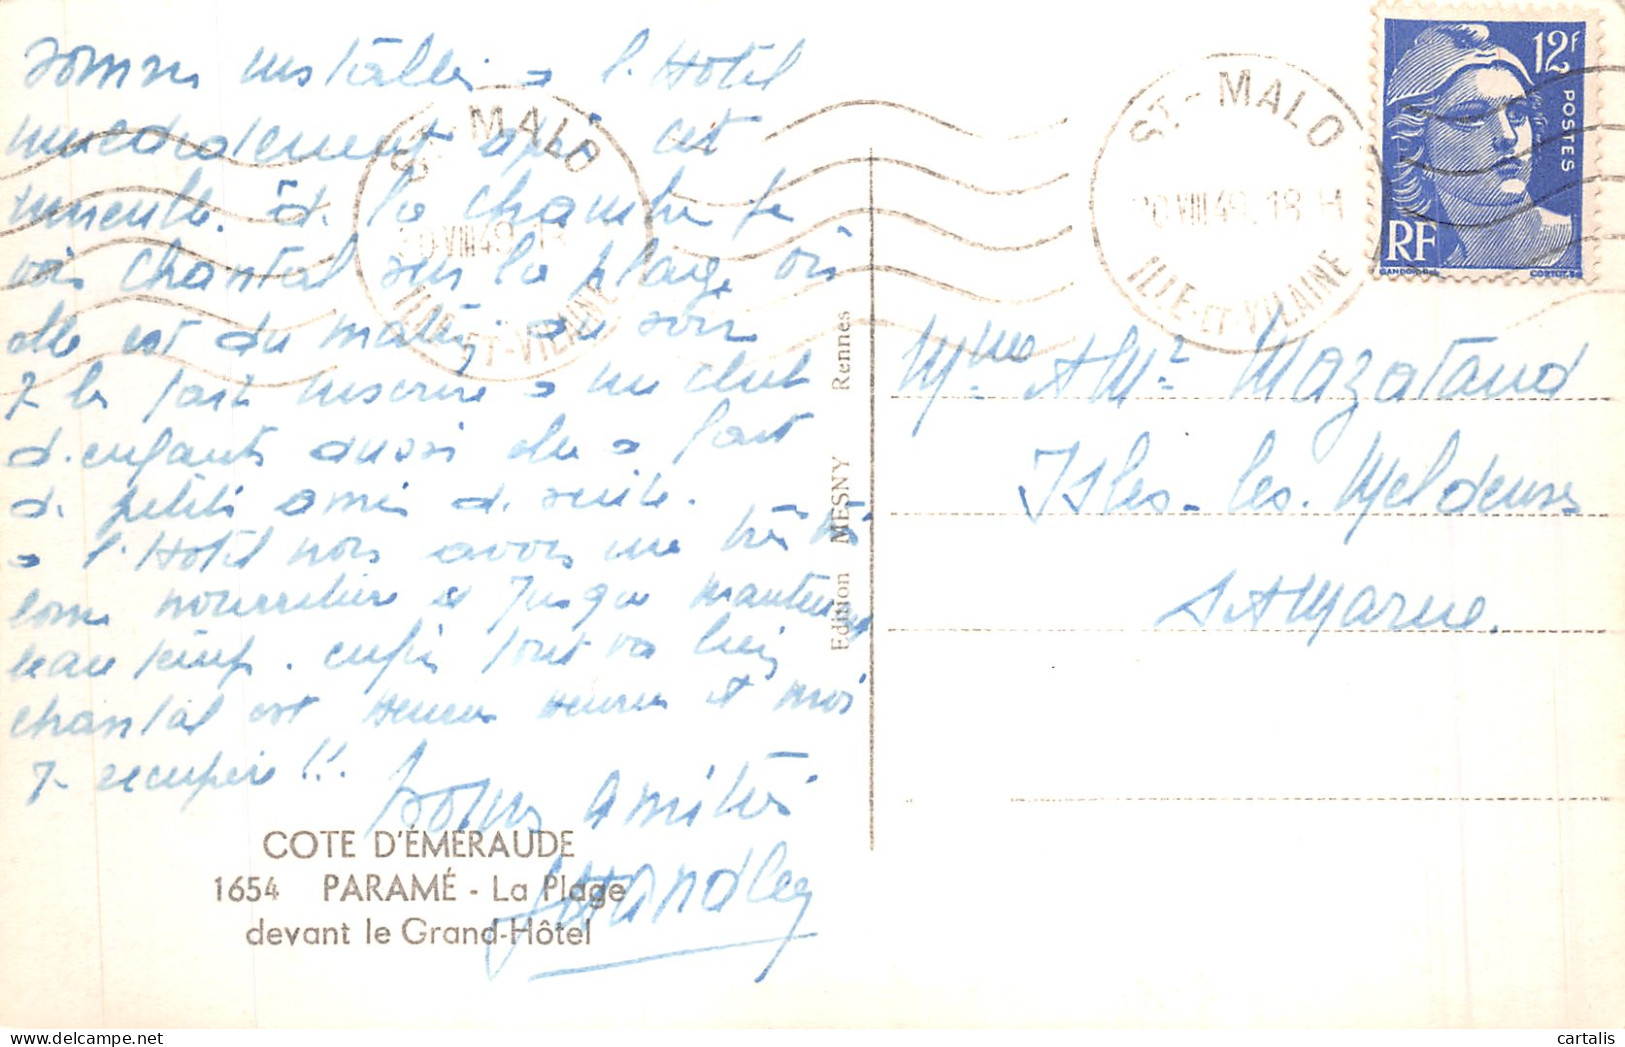 sommes installés à l'Hotel
après cet
de la chambre je
vois Chantal sur la plage où
elle est du matin au soir
Je l'ai fait inscrire à un club
d'enfants aussi elle a fait
de petits amis de suite.
à l'Hotel nous avons une très très
bonne nourriture et jusque maintenant
beau temps. enfin tout va bien
Chantal est heureuse et moi
Je récupère !!.
Bonnes Amitiés
COTE D'ÉMERAUDE
1654 PARAMÉ - La Plage
devant le Grand-Hôtel
Edition MESNY Rennes
ST-MALO
VIII 49
ILLE-ET-VILAINE
ST-MALO
VIII 49 18 H
ILLE-ET-VILAINE
12F
POSTES
RF
GANDON
Mme & Mr Mazataud
Isles-les-Meldeuses
S&Marne.
cartalis